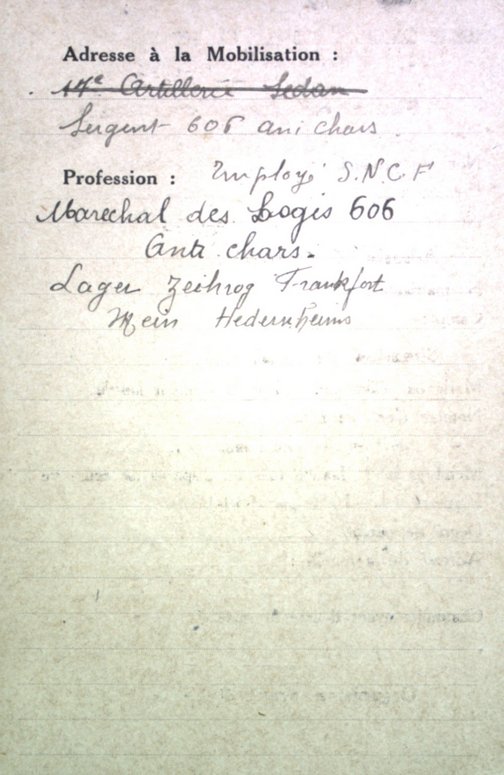 Adresse à la Mobilisation :
14e Artillerie Sedan
Sergent 606 ani chars
Profession : Employé S.N.C.F
Marechal des Logis 606
Anti chars.
Lager Zeihrog Frankfort
Mein Hedernheims